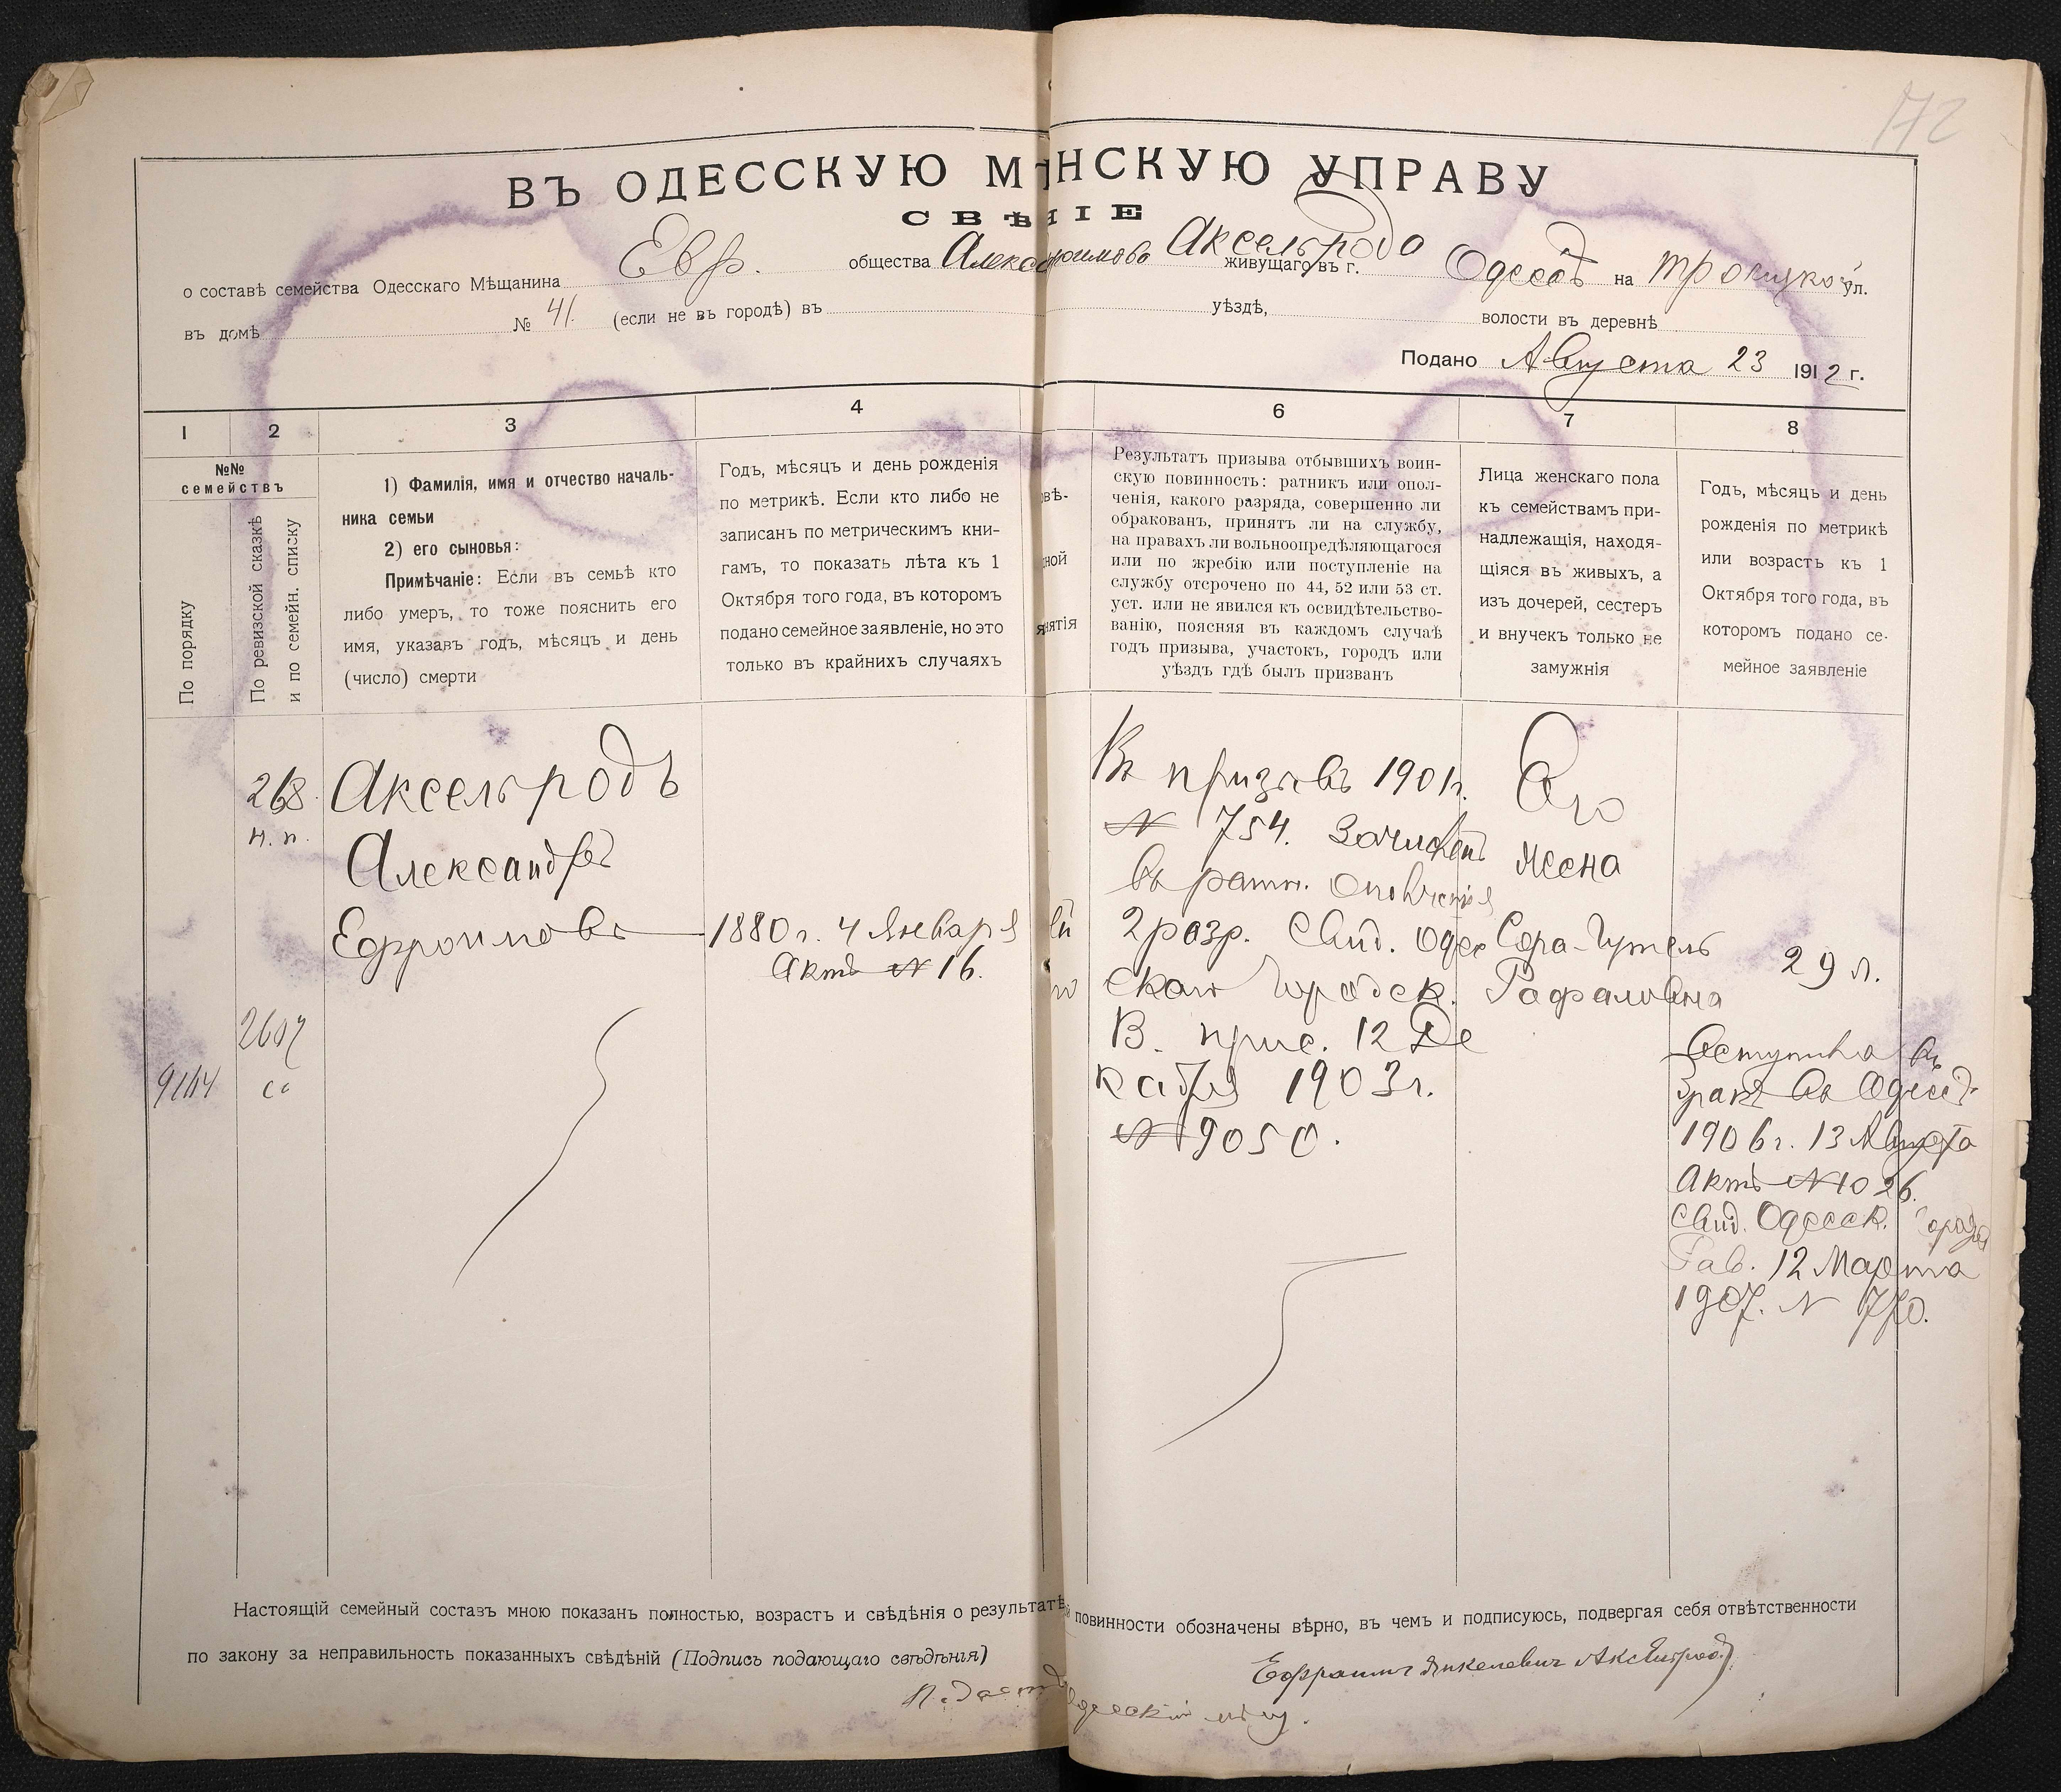 172
ВЪ ОДЕССКУЮ М НСКУЮ УПРАВУ
СВѢ ІЕ
о составѣ семейства Одесскаго Мѣщанина Евр. общества Алекса Аксельрода живущаго въ г. Одессѣ на Троицкой ул.
въ домѣ № 41. (если не въ городѣ) въ уѣздѣ, волости въ деревнѣ
Подано Августа 23 1912 г.
1 2 3 4 6 7 8
№№
семействъ
По порядку
По ревизской сказкѣ
и по семейн. списку
1) Фамилія, имя и отчество началь-
ника семьи
2) его сыновья:
Примѣчаніе: Если въ семьѣ кто
либо умеръ, то тоже пояснить его
имя, указавъ годъ, мѣсяцъ и день
(число) смерти
Годъ, мѣсяцъ и день рожденія
по метрикѣ. Если кто либо не
записанъ по метрическимъ кни-
гамъ, то показать лѣта къ 1
Октября того года, въ которомъ
подано семейное заявленіе, но это
только въ крайнихъ случаяхъ
овѣ-
ной
нятія
Результатъ призыва отбывшихъ воин-
скую повинность: ратникъ или опол-
ченія, какого разряда, совершенно ли
обракованъ, принятъ ли на службу,
на правахъ ли вольноопредѣляющагося
или по жребію или поступленіе на
службу отсрочено по 44, 52 или 53 ст.
уст. или не явился къ освидѣтельство-
ванію, поясняя въ каждомъ случаѣ
годъ призыва, участокъ, городъ или
уѣздъ гдѣ былъ призванъ
Лица женскаго пола
къ семействамъ при-
надлежащія, находя-
щіяся въ живыхъ, а
изъ дочерей, сестеръ
и внучекъ только не
замужнія
Годъ, мѣсяцъ и день
рожденія по метрикѣ
или возрастъ къ 1
Октября того года, въ
которомъ подано се-
мейное заявленіе
268
н. п.
Аксельродъ
Александръ
Ефроимовъ
1880 г. 4 Января
Актъ № 16.
Въ призывъ 1901 г.
№ 754. Зачисленъ
въ ратн. ополченія
2 разр. Свид. Одес
скаго Городск.
В. прис. 12 Де
кабря 1903 г.
№ 9050.
Его
жена
Сора-Гитель
Рафаиловна
29 л.
Вступила въ
бракъ въ Одессѣ
1906 г. 13 Августа
Актъ № 1026.
Свид. Одесск. Город
Рав. 12 Марта
1907. № 770.
Настоящій семейный составъ мною показанъ полностью, возрастъ и свѣдѣнія о результатѣ повинности обозначены вѣрно, въ чемъ и подписуюсь, подвергая себя отвѣтственности
по закону за неправильность показанныхъ свѣдѣній (Подпись подающаго свѣдѣнія)
Ефраимъ Янкелевичъ Аксельродъ